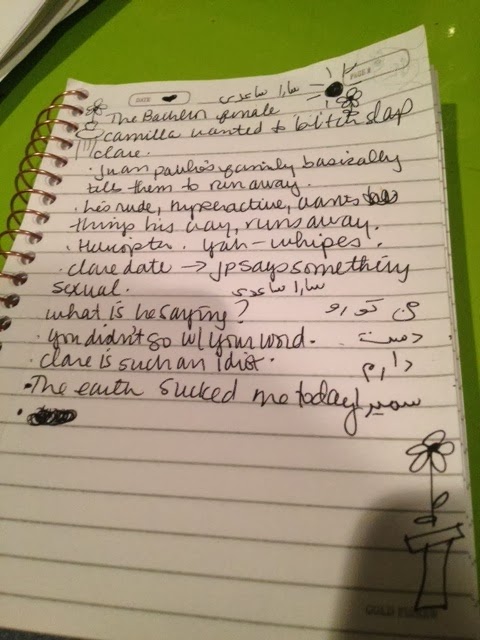 DATE PAGE
سارا ساعدی
The Bachelor finale
camilla wanted to bitch slap
clare.
· Juan pablo's family basically
tells them to run away.
· he's rude, hyperactive, wants
things his way, runs away.
· Helicopter. yah - whipes.
· clare date → jp says something
sexual. سارا ساعدی
what is he saying? من تو رو
· you didn't go w/ your word. دوست
· clare is such an idiot. دارم
· The earth sucked me today! سمیرا
GOLD